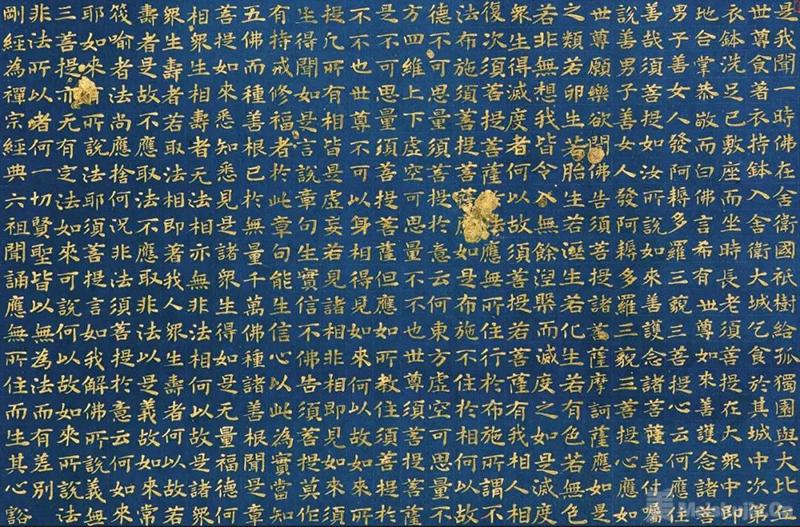 是我聞一時佛在舍衛國祇樹給孤獨園與大比
世尊食著衣持鉢入舍衛大城乞食於其城中次
衣鉢洗足已敷座而坐時長老須菩提在大眾中即
地合掌恭敬而白佛言希有世尊如來善護念諸
男子善女人發阿耨多羅三藐三菩提心云何應
善哉須菩提如汝所說如來善護念諸菩薩善付囑
說善男子善女人發阿耨多羅三藐三菩提心應如
世尊願樂欲聞佛告須菩提諸菩薩摩訶薩應如是
之類若卵生若胎生若濕生若化生若有色若無色
若非無想我皆令入無餘涅槃而滅度之如是滅度
眾生得滅度者何以故須菩提若菩薩有我相人相
復次須菩提菩薩於法應無所住行於布施所謂不
法布施須菩提菩薩應如是布施不住於相何以故
德不可思量須菩提於意云何東方虛空可思量不
方四維上下虛空可思量不不也世尊須菩提菩
是不可思量須菩提菩薩但應如所教住須菩提
不不也世尊不可以身相得見如來何以故如來所
提凡所有相皆是虛妄若見諸相非相即見如來須菩
生得聞如是言說章句生實信不佛告須菩提莫作
有持戒修福者於此章句能生信心以此為實當知
五佛而種善根已於無量千萬佛種諸善根聞是章
菩提如來悉知悉見是諸眾生得如是無量福德何
相眾生相壽者相無法相亦無非法相何以故是諸
眾生壽者若取法相即著我人眾生壽者何以故
壽者是故不應取法不應取非法以是義故如來常
筏喻者法尚應捨何況非法須菩提於意云何如來
耶如來有所說法耶須菩提言如我解佛所說義無
三菩提亦无有定法如來可說何以故如來所說法
非法所以者何一切賢聖皆以無為法而有差別
剛經為禪宗經典六祖聞誦應無所住而生其心豁